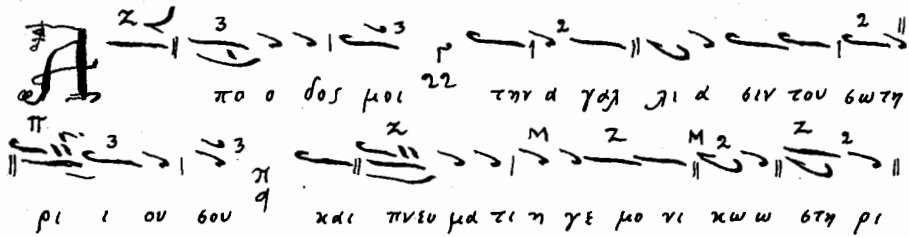 Α πο ο δος μοι την α γαλ λι α σιν του σωτη
ρι ι ου σου και πνευ μα τι η γε μο νι κω ω στη ρι